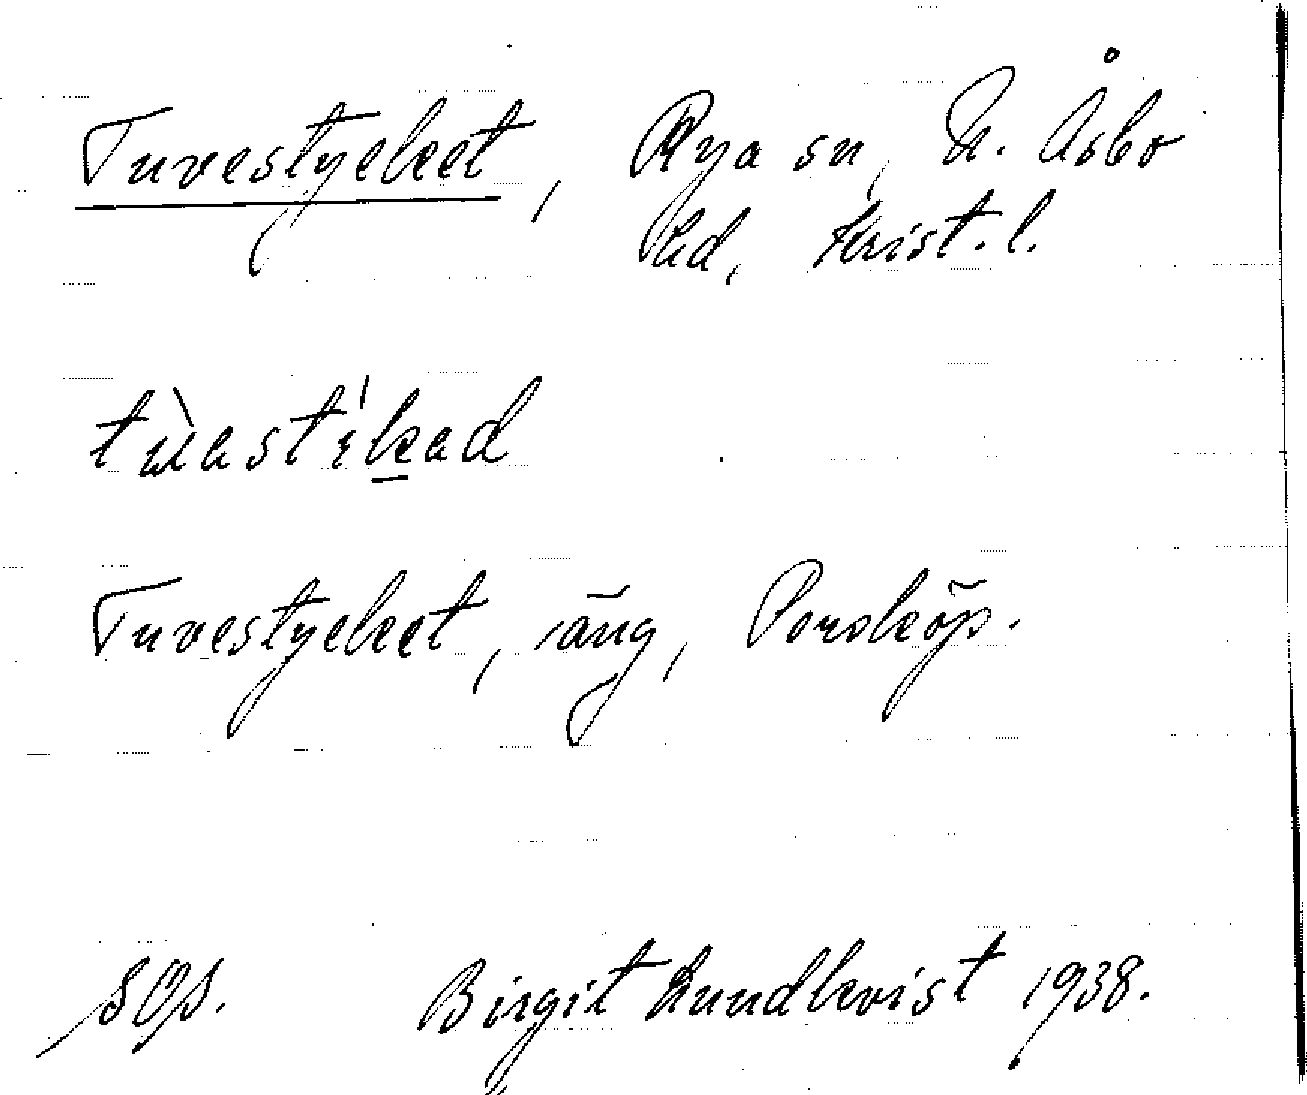 Tuvestycket, Rya sn, N. Åsbo
hd, Krist. l.
tùastẹ'kad
Tuvestycket, äng, Porsköp.
SOA. Birgit Lundkvist 1938.